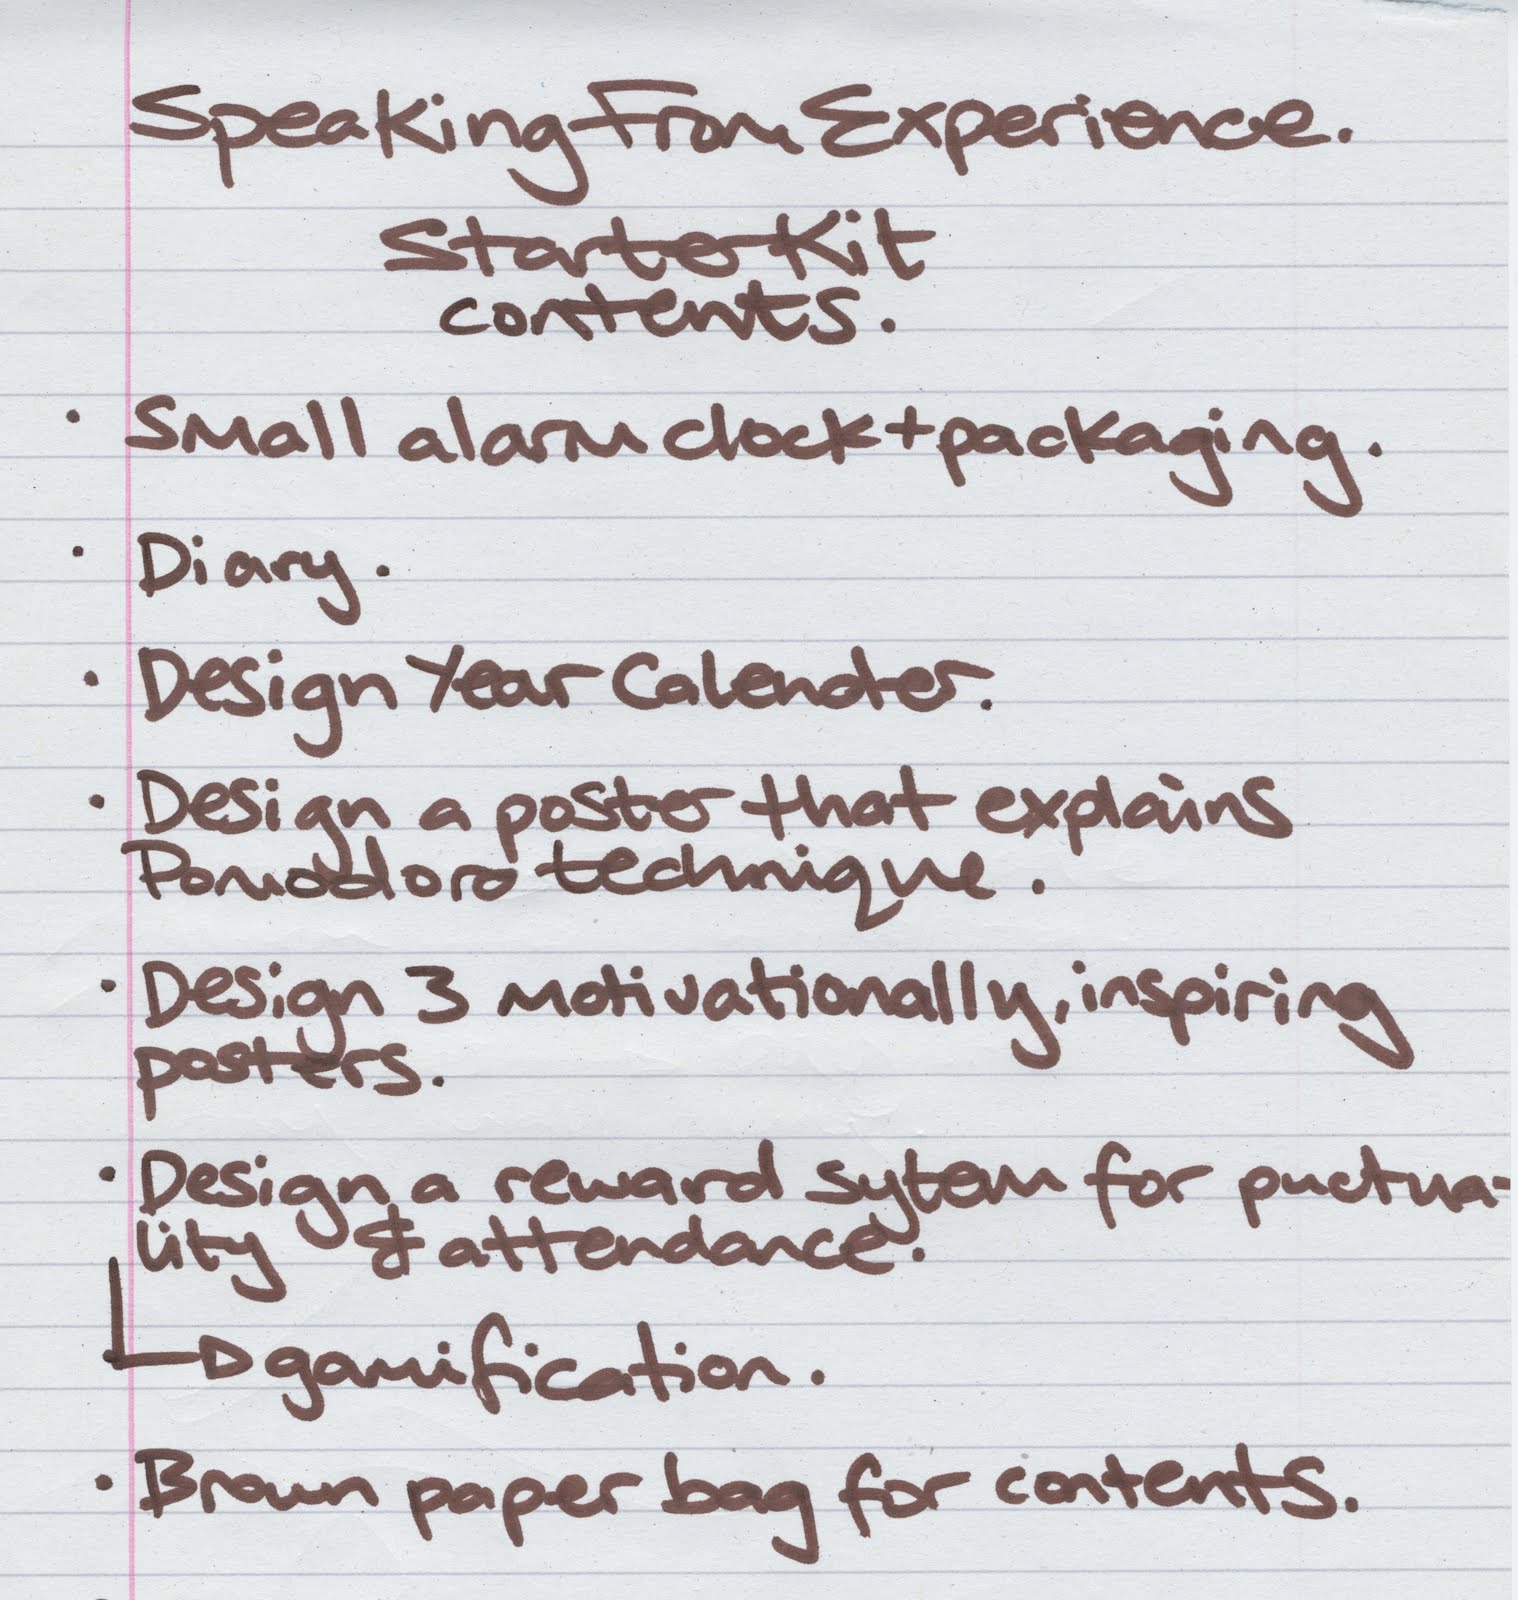 Speaking From Experience.
Starter Kit
contents.
· Small alarm clock + packaging.
· Diary.
· Design Year Calender.
· Design a poster that explains
Pomodoro technique.
· Design 3 motivationally, inspiring
posters.
· Design a reward sytem for puctua-
lity & attendance.
gamification.
· Brown paper bag for contents.